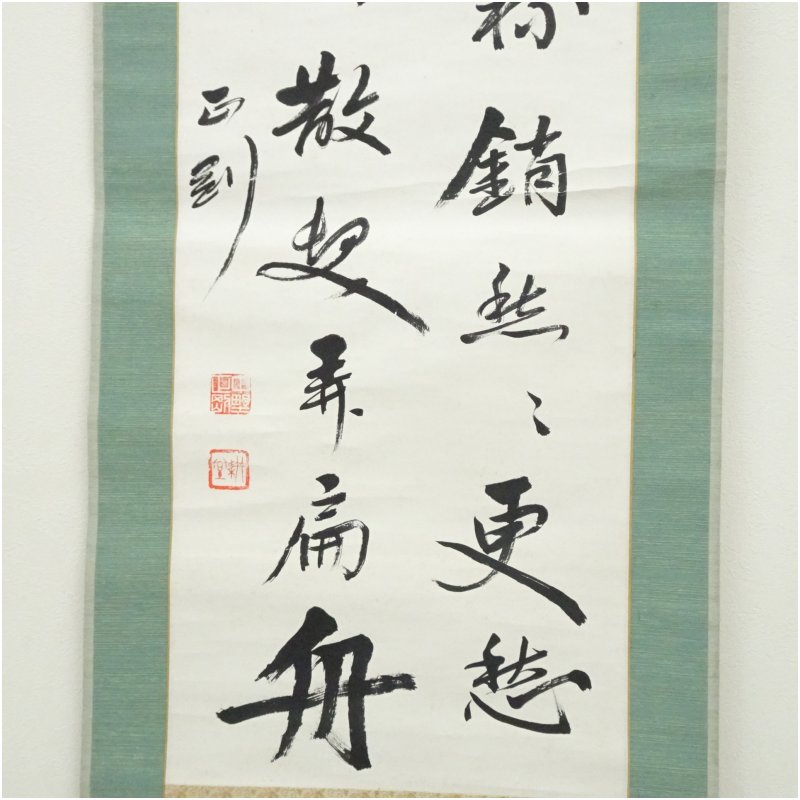 銷愁〻更愁
散髮弄扁舟
正剛